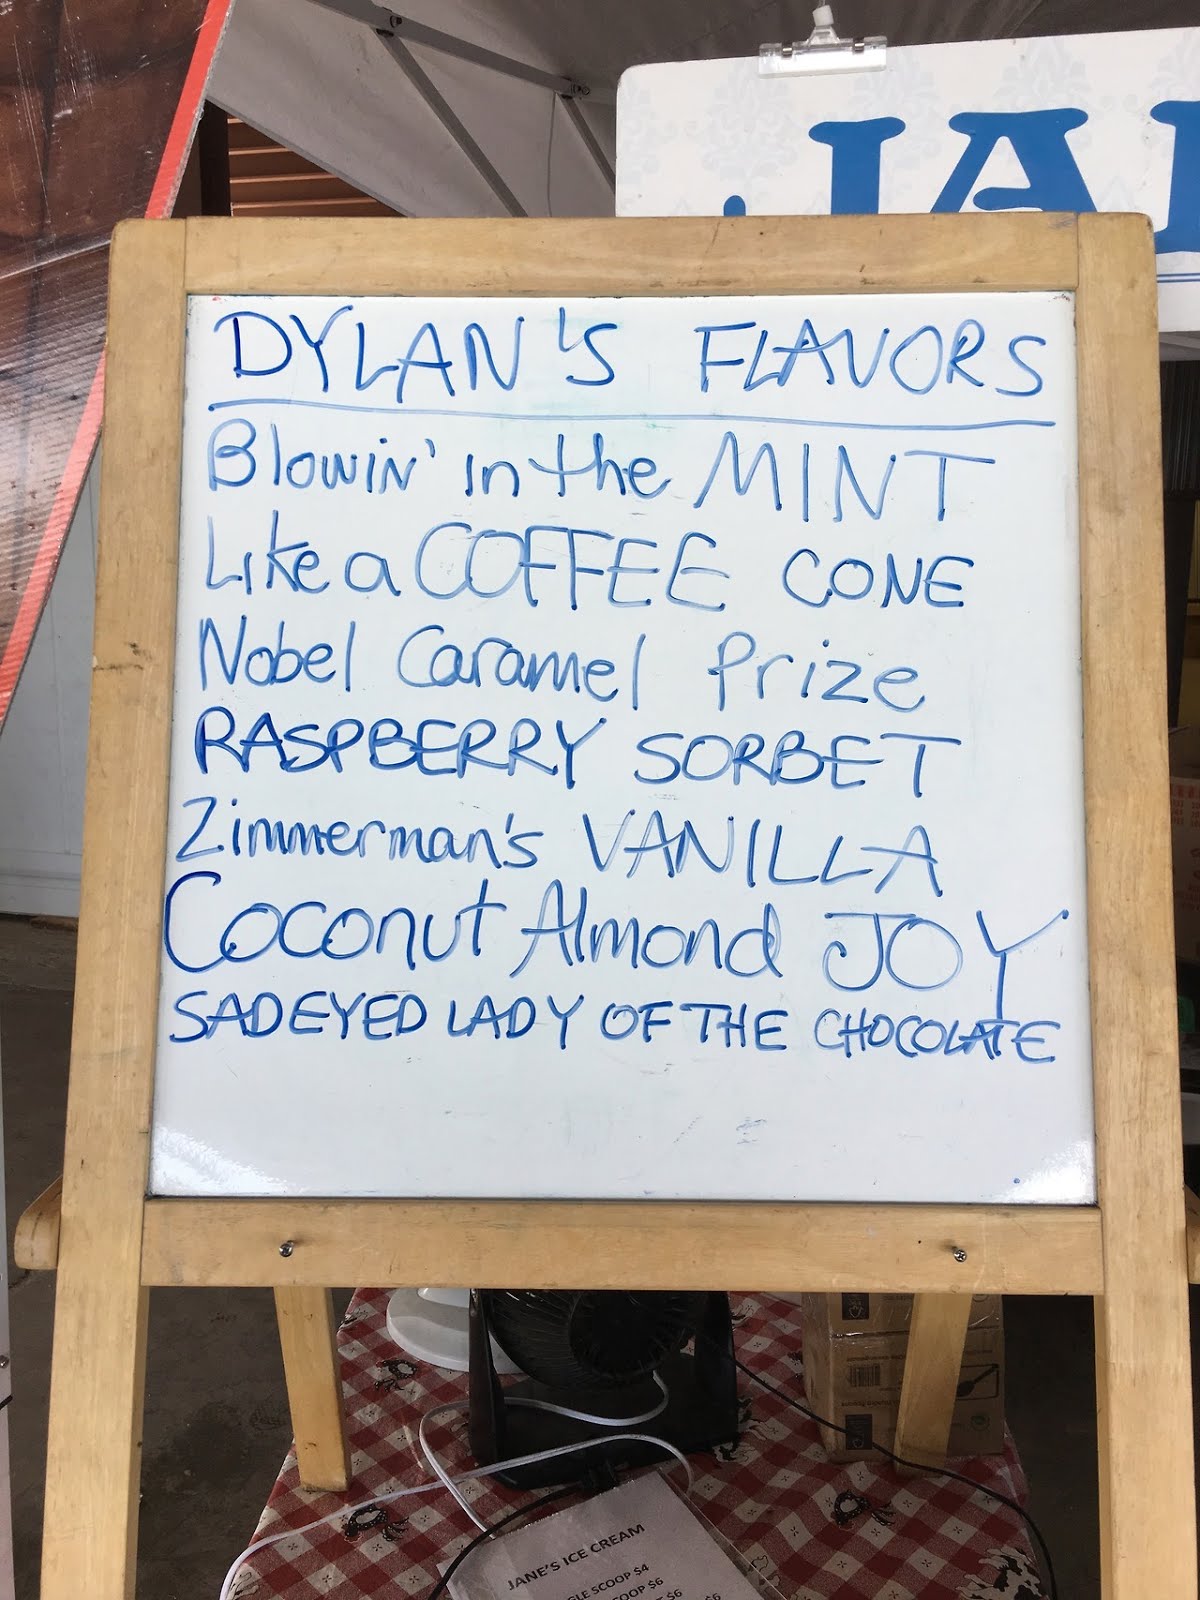 JA
DYLAN'S FLAVORS
Blowin' in the MINT
Like a COFFEE CONE
Nobel Caramel Prize
RASPBERRY SORBET
Zimmerman's VANILLA
Coconut Almond JOY
SADEYED LADY OF THE CHOCOLATE
JANE'S ICE CREAM
GLE SCOOP $4
OOP $6
$6
$6